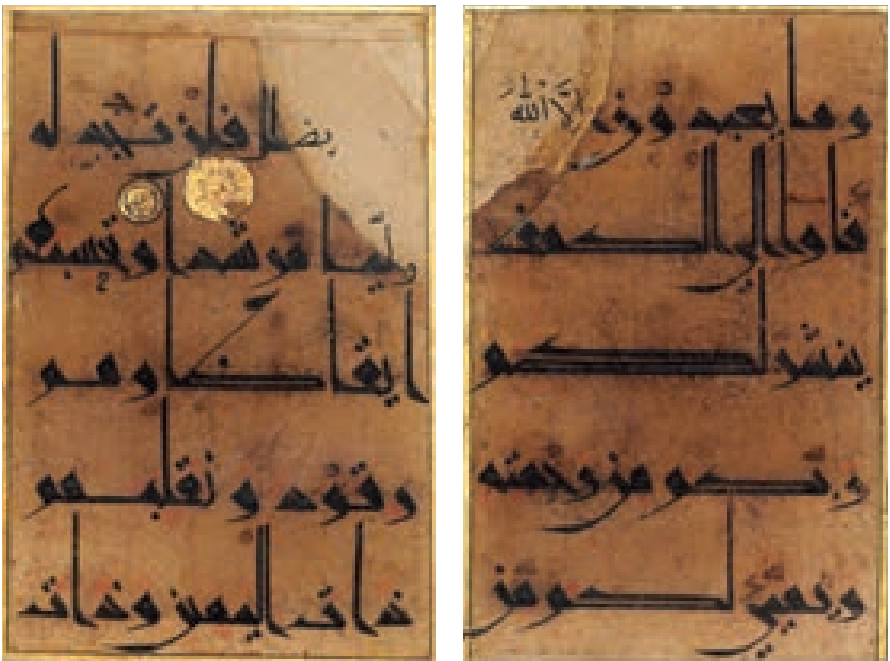 وما يعبدون الا الله
فاوا الى الكهف
ينشر لكم
ربكم من رحمته
ويهيئ لكم من
يضلل فلن تجد له
وليا مرشدا وتحسبهم
ايقاظا وهم
رقود ونقلبهم
ذات اليمين وذات